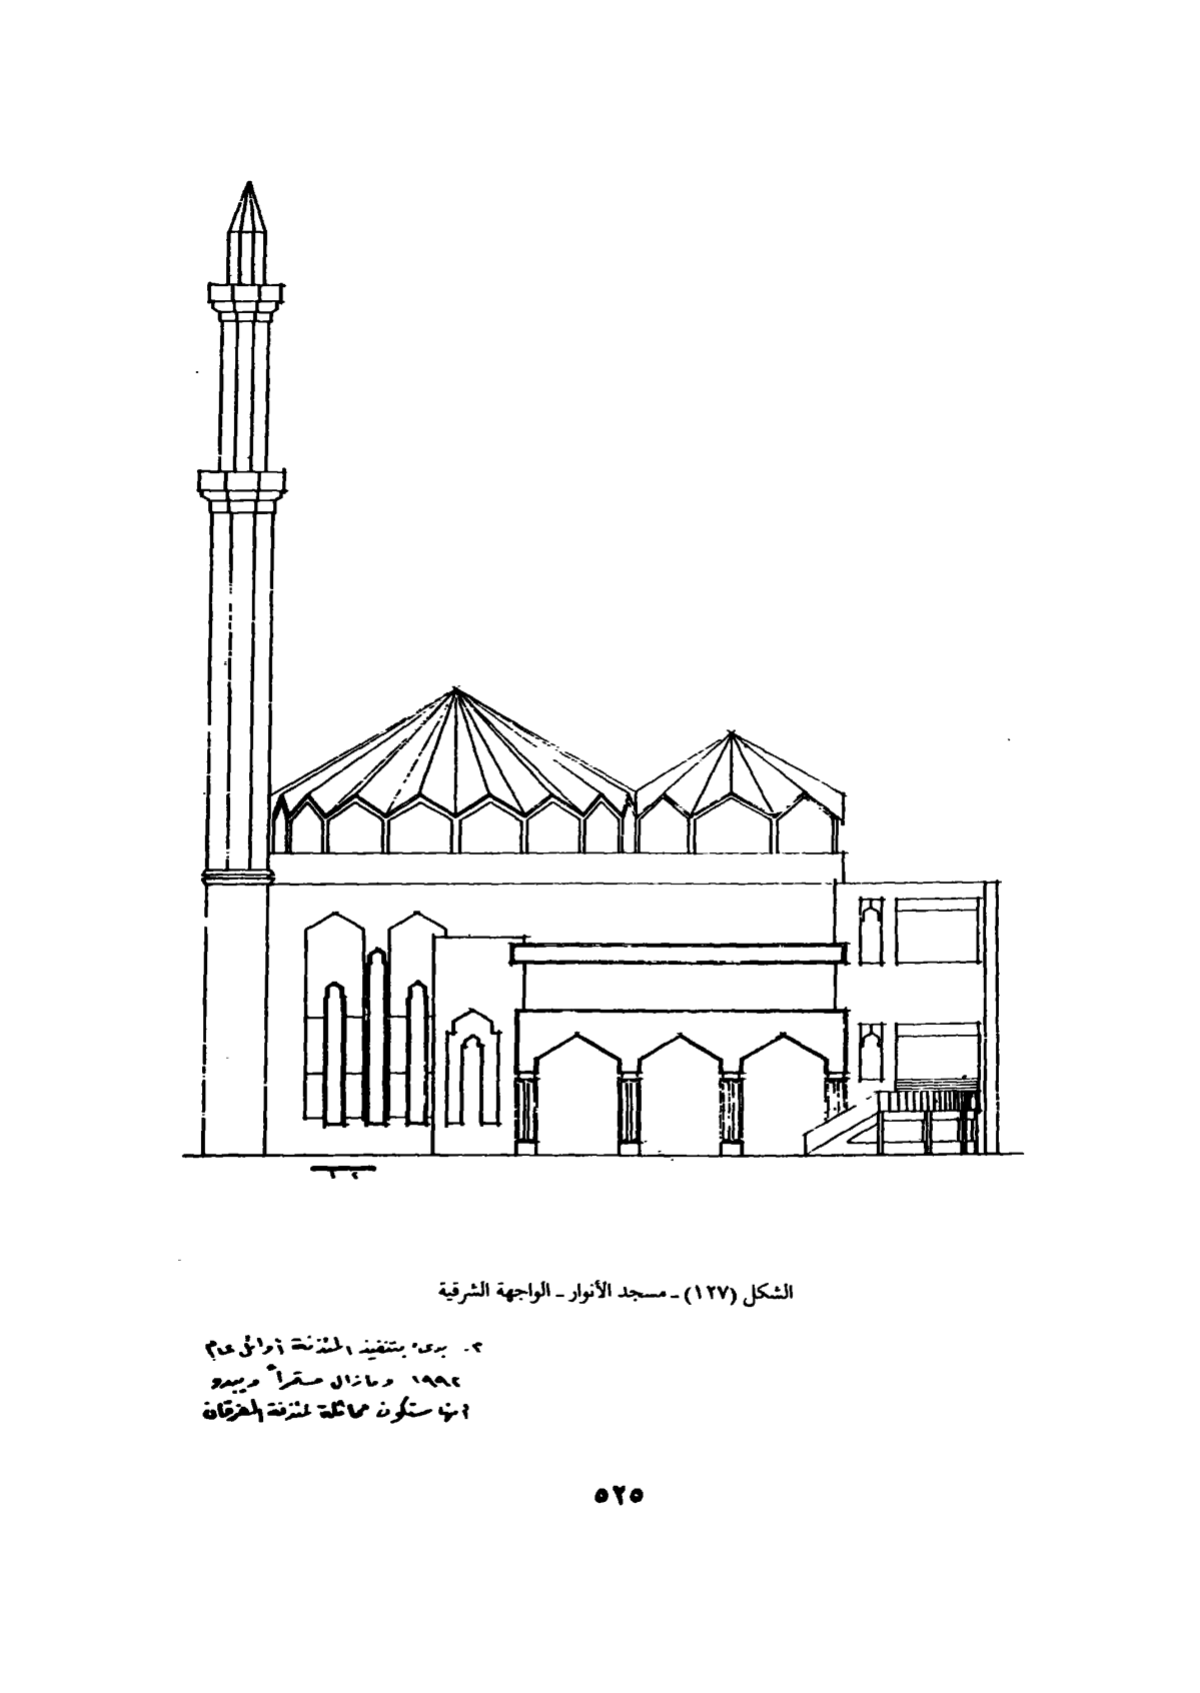 ٢ ١
الشكل (١٢٧) ـ مسجد الأنوار ـ الواجهة الشرقية
٢ـ بدئ بتنفيذ المئذنة أوائل عام
١٩٩٢ ومازال مستمراً ويبدو
أنها ستكون مماثلة لمئذنة الفرقان
٥٢٥